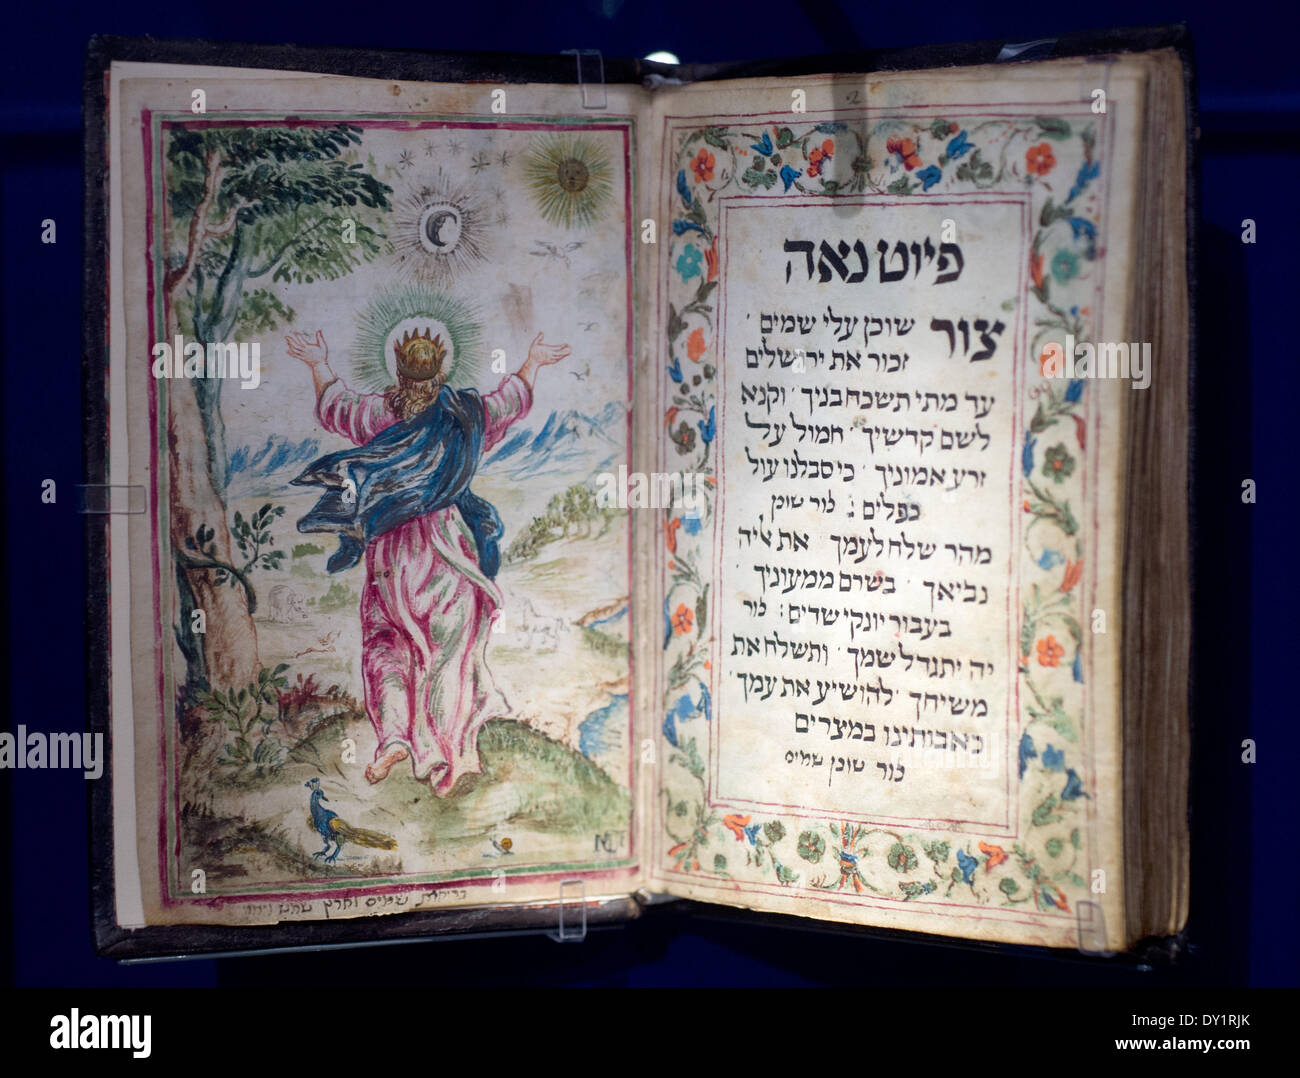 2
פיוט נאה
צור שוכן עלי שמים
זכור את ירושלים
עד מתי תשכח בניך וקנא
לשם קדשיך חמול על
זרע אמוניך כי סבלנו עול
כפלים : צור שוכן
מהר שלח לעמך את אליה
נביאך בשרם ממעוניך
בעבור יונקי שדים : צור
יה יתגדל שמך ותשלח את
משיחך להושיע את עמך
כאבותינו במצרים
צור שוכן שמים
בריאת שמים וארץ
alamy stock photo
DY1RJK
www.alamy.com